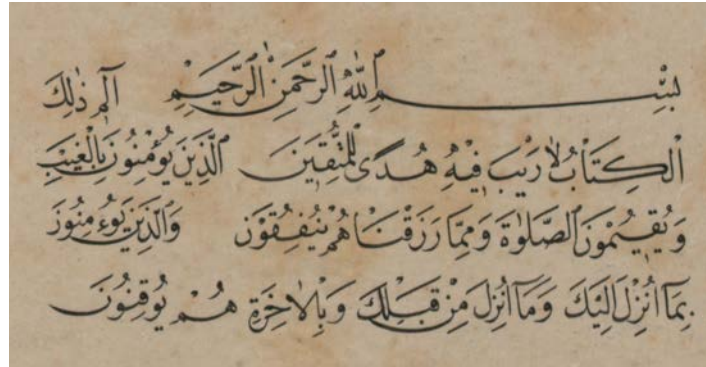 بِسْمِ ٱللّٰهِ ٱلرَّحْمٰنِ ٱلرَّحِيْمِ الٓمٓ ذٰلِكَ
الْكِتَابُ لَا رَيْبَ فِيْهِ هُدًى لِلْمُتَّقِيْنَ الَّذِيْنَ يُؤْمِنُوْنَ بِالْغَيْبِ
وَيُقِيْمُوْنَ الصَّلٰوةَ وَمِمَّا رَزَقْنَاهُمْ يُنْفِقُوْنَ وَالَّذِيْنَ يُؤْمِنُوْنَ
بِمَآ اُنْزِلَ اِلَيْكَ وَمَآ اُنْزِلَ مِنْ قَبْلِكَ وَبِالْاٰخِرَةِ هُمْ يُوْقِنُوْنَ